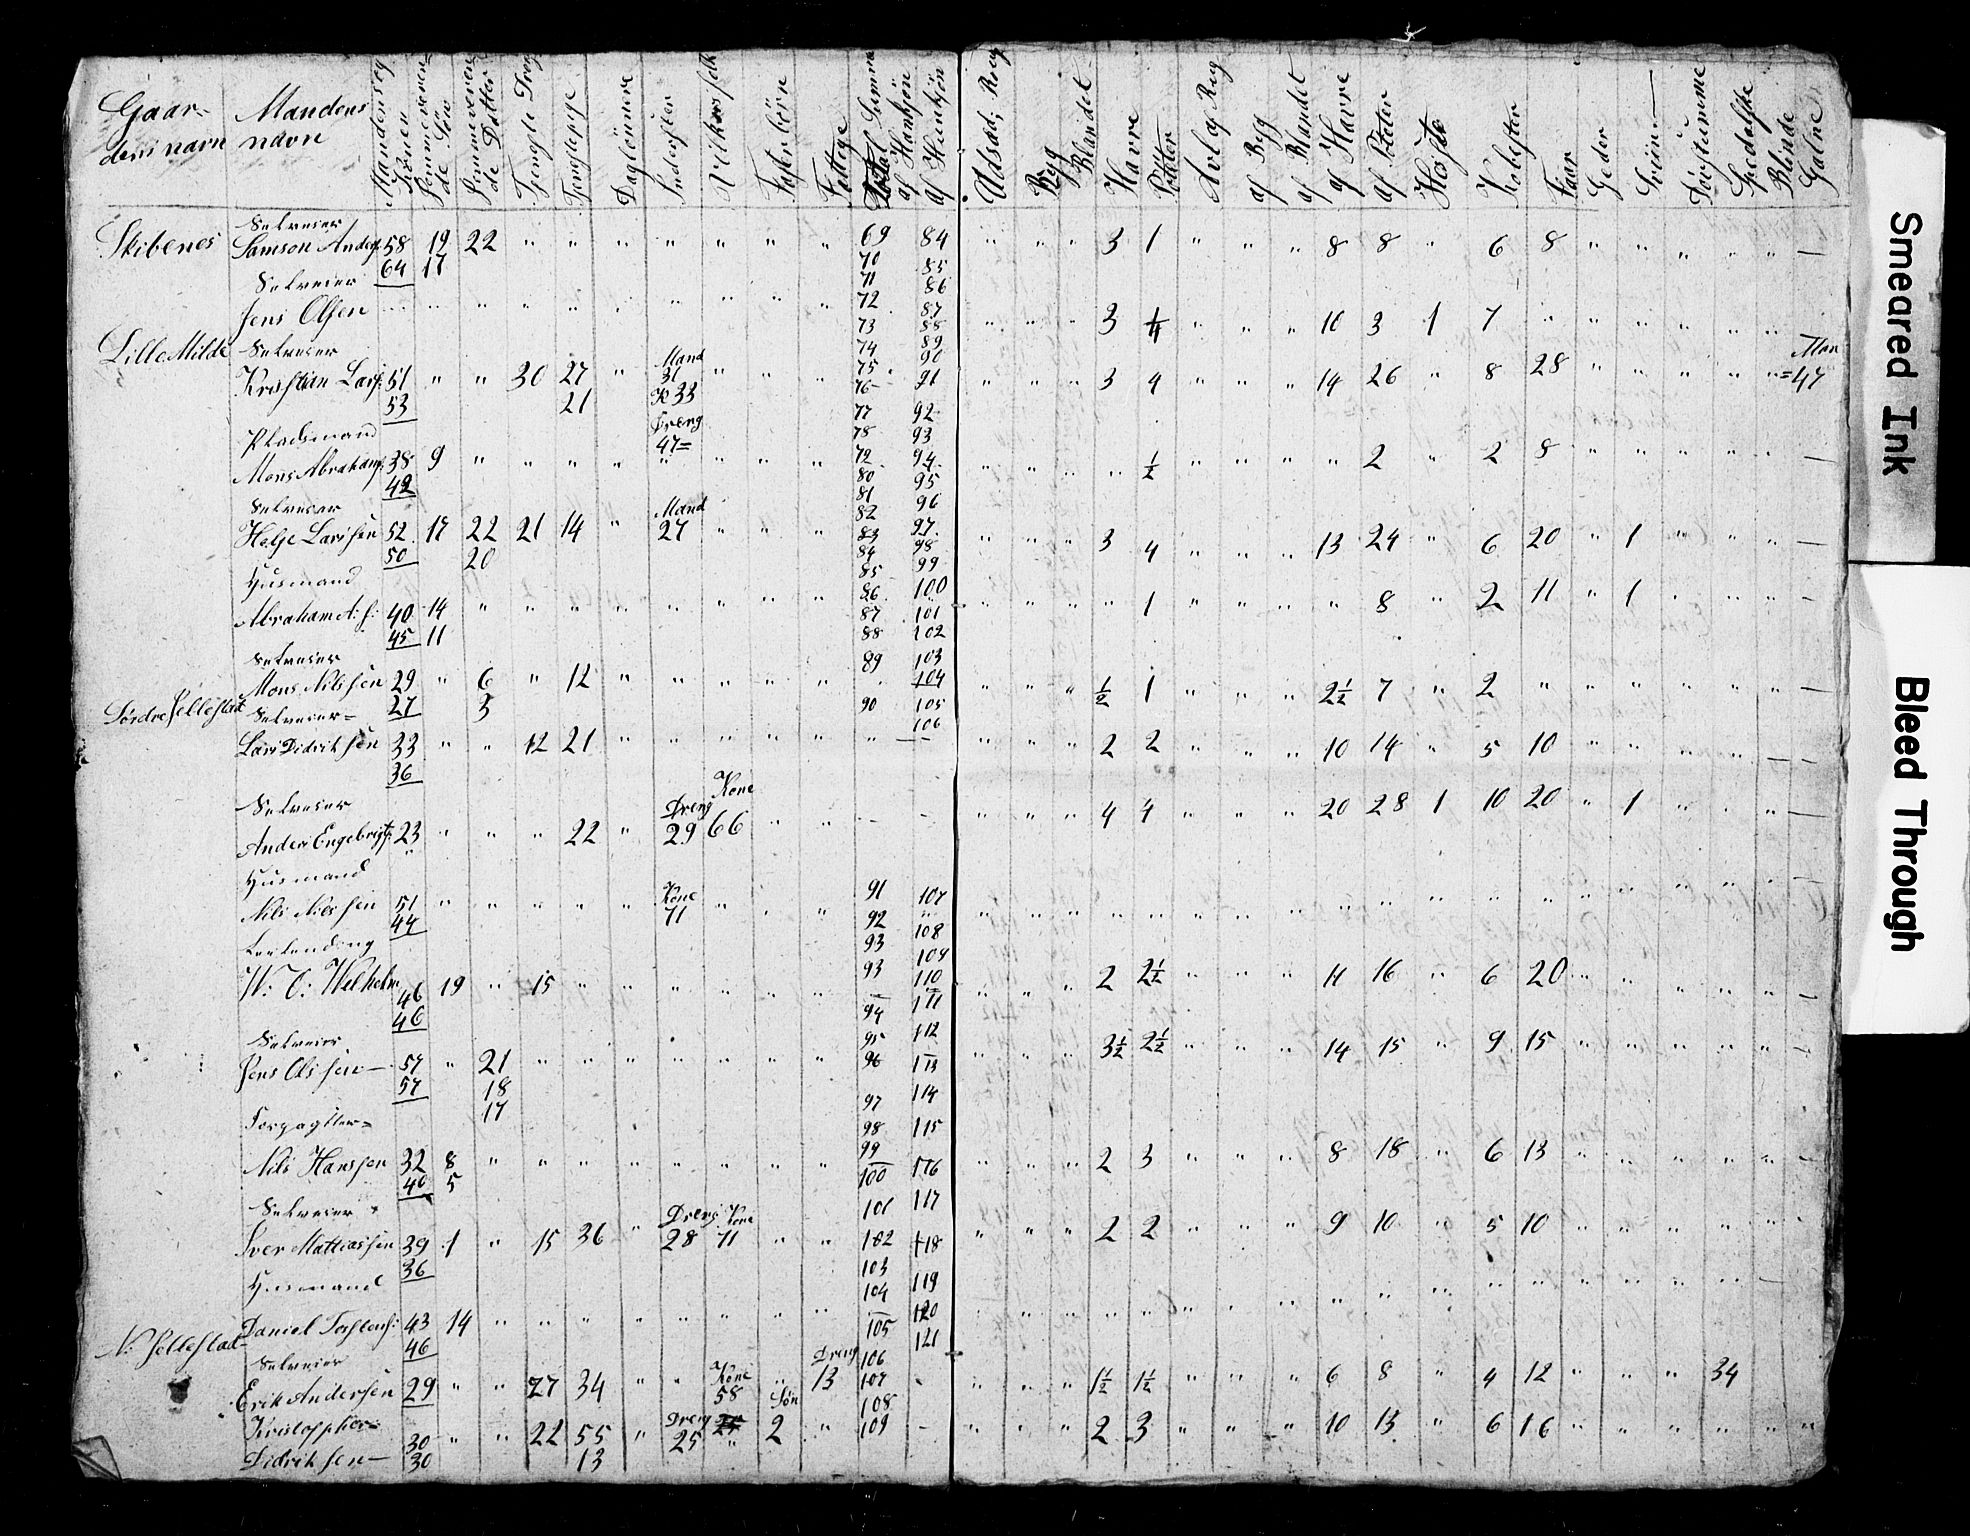 Gaar- Mandens Mandens og Konen Hiemmeværende Søn Hiemmeværende Datter Tjenste Dreng Tjenstepige Daglønnere Inderster Vilkersfolk Fosterbørn Fattige Summa af Hankjøn af Hunkjøn Udsæd, Rug Byg Blandet Havre Poteter Avl af Rug af Byg af Blandet af Havre af Poteter Heste Kobester Faar Geder Sviin Døvstumme Spedalske Blinde Galne
dens navn navn
Selveier
Skibenes Samson Anders. 58 19 22 " " " " " " " 69 84 " " " 3 1 " " " 8 8 " 6 8 " " " " " —
64 17 70 85
Selveier 71 86
Jens Olsen 72 87 3 1/4 " " " 10 3 1 7 " " " " " "
73 88
Lille Milde Selveier Mand 74 89 Man
Kristian Lars. 51 " " 30 27 " 31 " " " 75 90 91 " " " 3 4 " " " 14 26 " 8 28 " " " " " = 47
53 21 K 33 76
Pladsmand Dreng 77 92
Mons Abrahams. 38 9 " " " " 47= 78 93 1/2 " " " " 2 " 2 8 " " " " " —
42 72 94
80 95
Selveier Mand 81 96
Helje Larssen 52 17 22 21 14 " 27 " " " 82 97 " " " 3 4 " " " 13 24 " 6 20 " 1 " " " —
50 20 83 98
84 99
Husmand 85 100
Abraham A. s. 40 14 " " " " " " " " 86 101 " " " " 1 " " " " 8 " 2 11 " 1 " " " —
45 11 87 102
88
Selveier 89 103
Mons Nilssen 29 " 6 " 12 " " " " " 104 " " " 1/2 1 " " " 2 1/2 7 " 2 " " " " " " —
27 3 90 105
Søndre Sellestad Selveier= 106
Lars Didriksen 33 " " 12 21 " " " " " " — " " " 2 2 " " " 10 14 " 5 10 " " " " — —
36
Selveier Dreng Kone
Anders Engebrigts. 23 " " " 22 " 29 66 " " " " " 4 4 " " " 20 28 1 10 20 " 1 " " " —
Husmand Kone 91 107
Nils Nilssen 51 " " " " " 71 " " " 92 "
44 93 108
Leilending 93 109
W: O: Welhelm 46 19 " 15 " " " " " " 110 " " " 2 2 1/2 " " " 11 16 " 6 20 " " —
46 94 111
Selveier 95 112
Jens Olssen — 57 " 21 " " " " " " " 96 113 " " " 3 1/2 2 1/2 " " " 14 15 " 9 15 " " " " " "
57 18 97 114
Forpagtter= 17 98 115
Nils Hanssen 32 8 " " " " " " " " 99 116 " " " 2 3 " " " 8 18 " 6 13 " " " " " —
40 5 100
Selveier Dreng Kone 101 117
Iver Mattiassen 39 1 " 15 36 " 28 71 " " 102 118 " " " 2 2 " " " 9 10 " 5 10 " " " " " "
36 103 119
Husmand 104 120
Daniel 43 14 " " " " " " " " 105 121
N: Sellestad 46
Selveier Kone Dreng 106
Erik Andersen 29 " " 27 34 " " 58 " 13 107 " " " 1 1/2 1 1/2 " " " 6 8 " 4 12 " " " 34
Søn 108
Kristopher= 30 " " 22 55 " Dreng 25 " 2 " 109 — " " " 2 3 " " " 10 13 " 6 16 " " " " " "
Didriksen— 30 13
Smeared Ink
Bleed Through